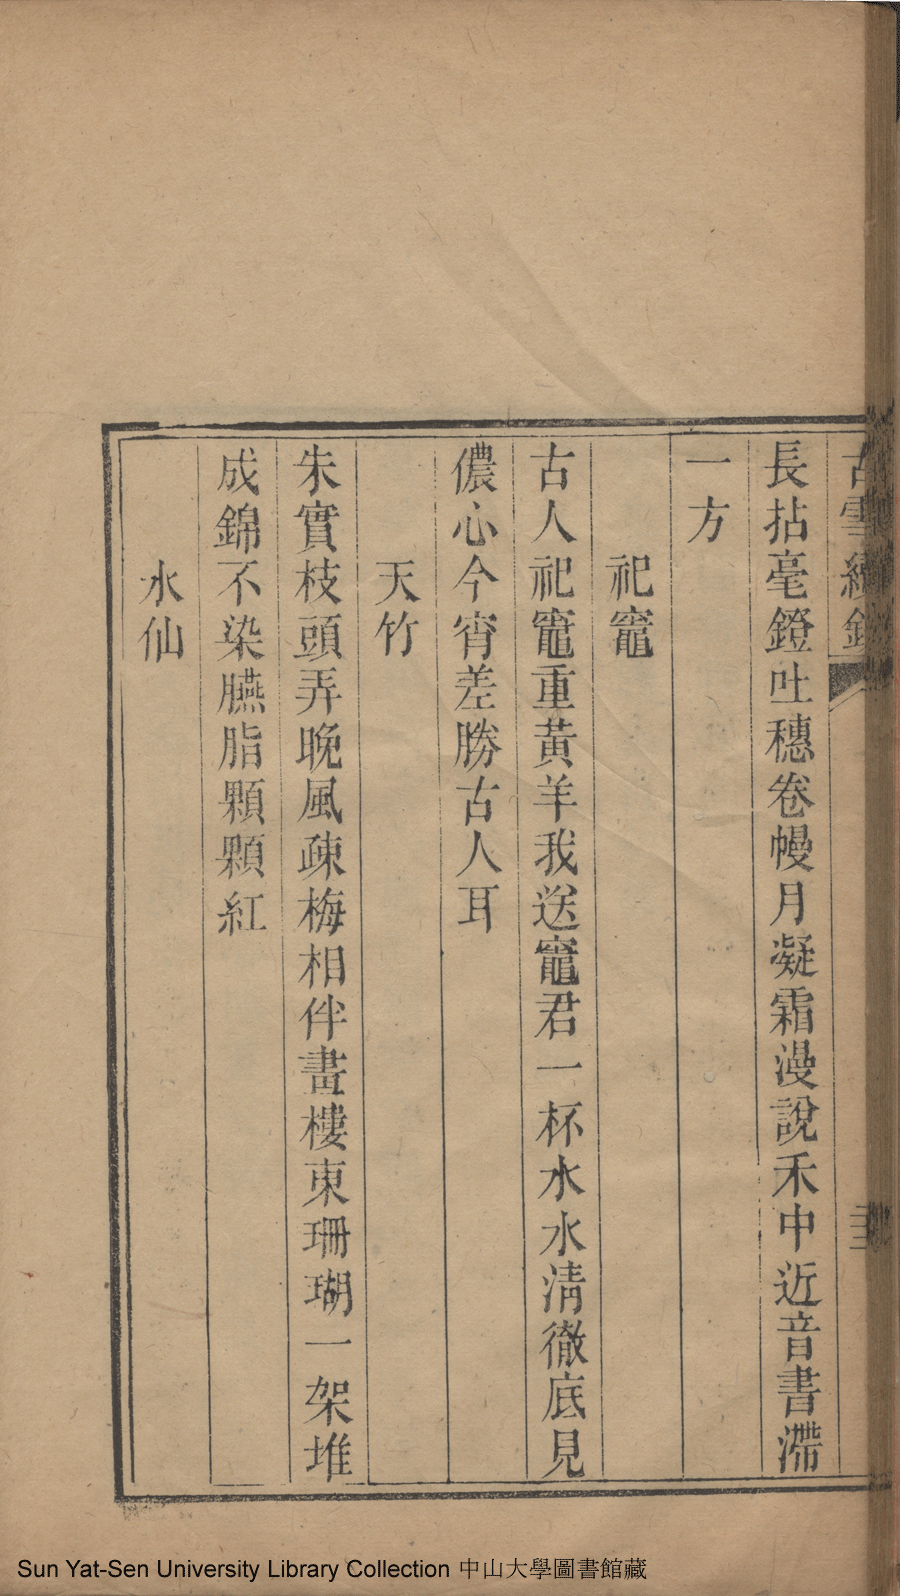 古雪
長拈毫鐙吐穗卷幔月凝霜漫說禾中近音書滯
一方
祀竈
古人祀竈重黃羊我送竈君一杯水水清徹底見
儂心今宵差勝古人耳
天竹
朱實枝頭弄晚風疎梅相伴畫樓東珊瑚一架堆
成錦不染臙脂顆顆紅
水仙
Sun Yat-Sen University Library Collection 中山大學圖書館藏